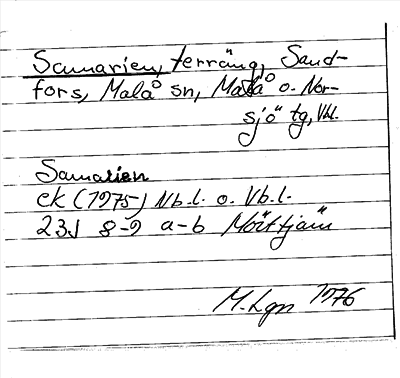 Samarien, terräng, Sand-
fors, Malå sn, Malå o. Nor-
sjö tg, Vbl.
Samarien
ek (1975) Nb.l. o. Vb.l.
23J 8-9 a-b Mörttjärn
M. Lgn 1976